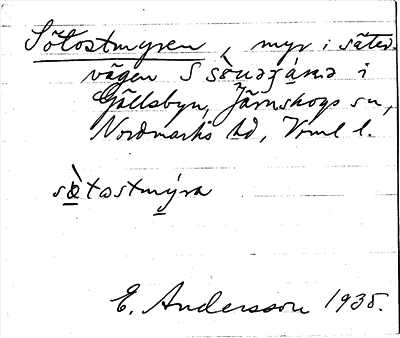 Sötostmyren, myr i säter-
vägen S i
Gällsbyn, Järnskogs sn,
Nordmarks hd, Vrml l.
sætostmýra
E. Andersson 1935.